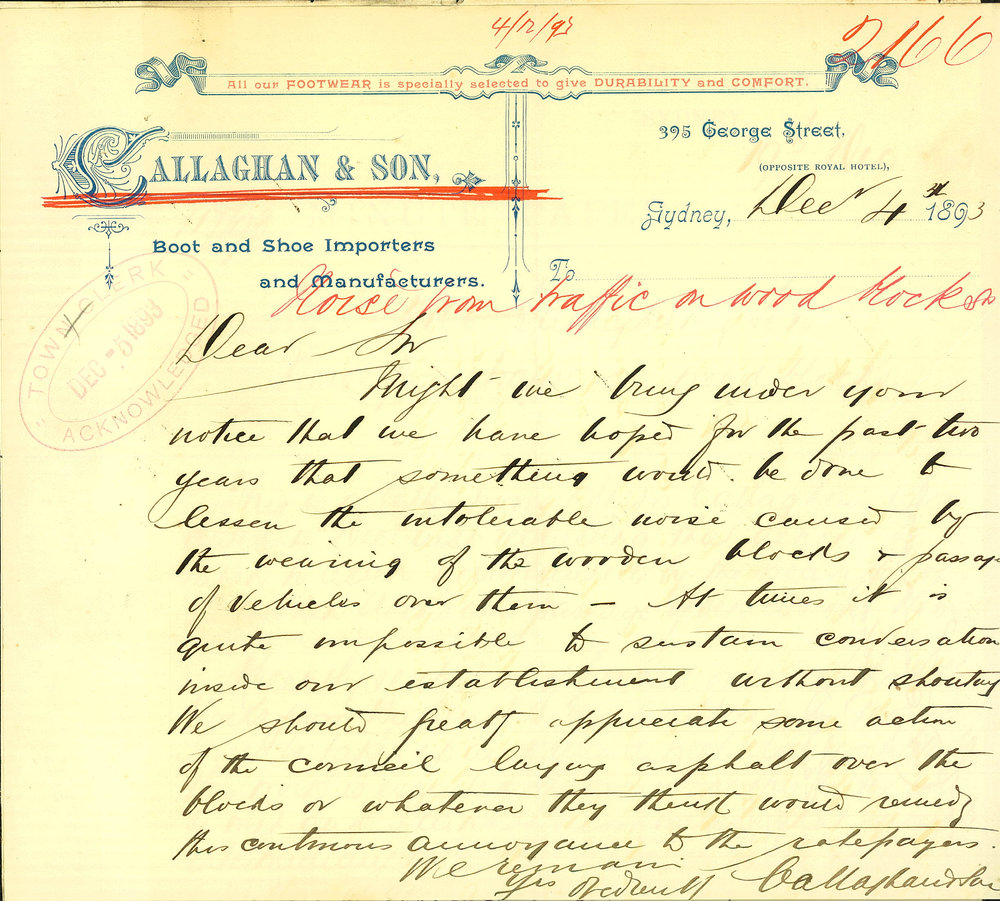 4/12/93
2166
All our FOOTWEAR is specially selected to give DURABILITY and COMFORT.
CALLAGHAN & SON,
395 George Street,
(OPPOSITE ROYAL HOTEL),
Sydney, Decr 4th 1893
Boot and Shoe Importers
and Manufacturers.
To
Noise from traffic on wood blocks
TOWN CLERK
DEC -5 1893
ACKNOWLEDGED
Dear Sir
Might we bring under your
notice that we have hoped for the past two
years that something would be done to
lessen the intolerable noise caused by
the wearing of the wooden blocks & passage
of vehicles over them – At times it is
quite impossible to sustain conversation
inside our establishment without shouting
We should greatly appreciate some action
of the council laying asphalt over the
blocks or whatever they think would remedy
this continuous annoyance to the ratepayers.
We remain
Yrs obediently Callaghan & Son